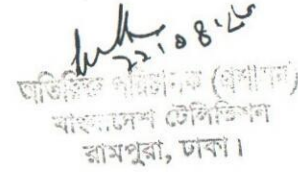 22.08.২৫
অতিরিক্ত পরিচালক (প্রশাসন)
বাংলাদেশ টেলিভিশন
রামপুরা, ঢাকা।